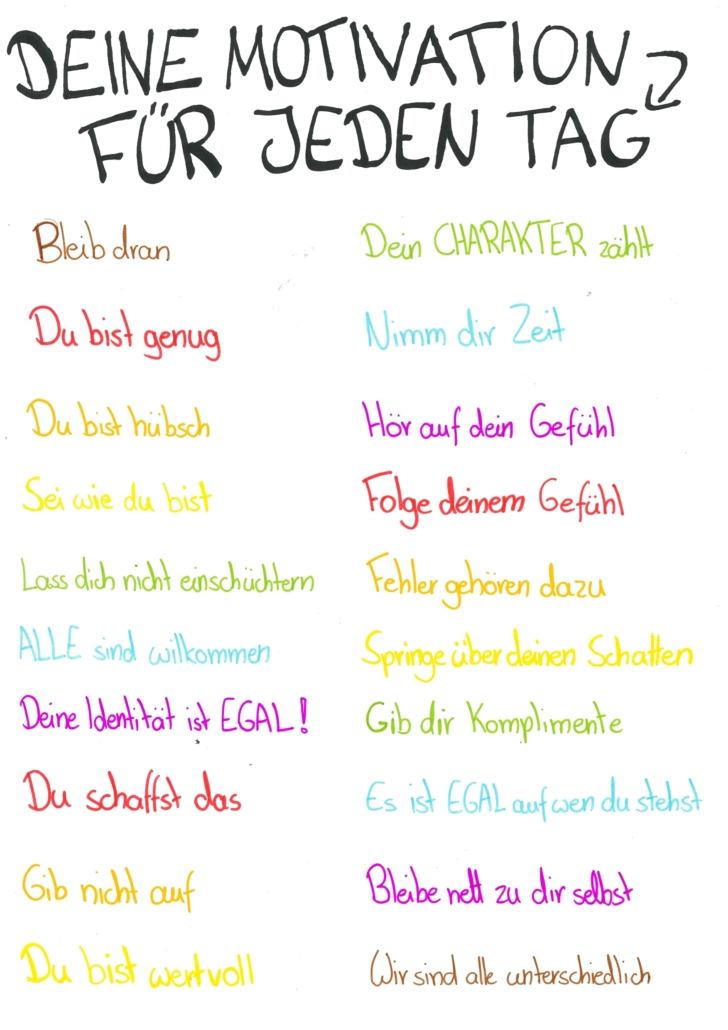 DEINE MOTIVATION
FÜR JEDEN TAG
Bleib dran
Du bist genug
Du bist hübsch
Sei wie du bist
Lass dich nicht einschüchtern
ALLE sind wilkommen
Deine Identität ist EGAL!
Du schaffst das
Gib nicht auf
Du bist wertvoll
Dein CHARAKTER zählt
Nimm dir Zeit
Hör auf dein Gefühl
Folge deinem Gefühl
Fehler gehören dazu
Springe über deinen Schatten
Gib dir Komplimente
Es ist EGAL auf wen du stehst
Bleibe nett zu dir selbst
Wir sind alle unterschiedlich